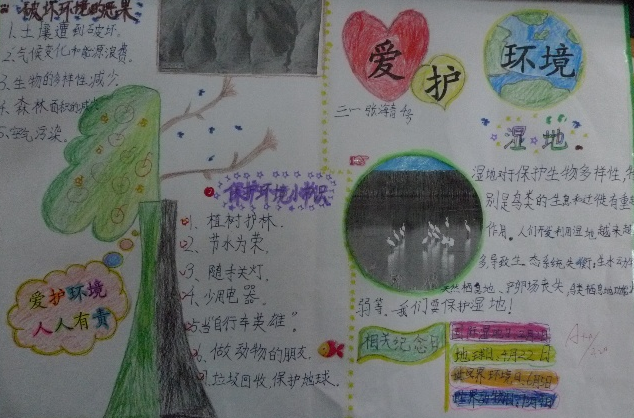 破坏环境的恶果
1.土壤遭到破坏.
2.气候变化和能源浪费.
3.生物的多样性减少.
4.森林面积的减少
5.空气污染.
保护环境小常识
1. 植树护林.
2. 节水为荣.
3. 随手关灯.
4. 少用电器.
5. 当"自行车英雄".
6. 做动物的朋友.
7. 垃圾回收.保护地球.
爱护环境
人人有责
爱护环境
二一
湿地
湿地对于保护生物多样性,特
别是鸟类的生息和迁徙有重要
作用。人们不爱利用湿地越来越
多,导致生态系统失衡;生水
弱等.我们要保护湿地!
相关纪念日
地球日.4月22日
世界环境日.6月5日
A++